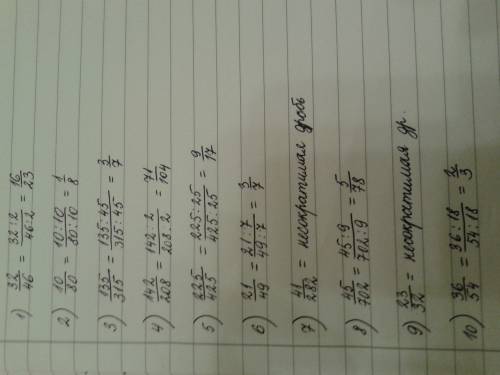 1) 32/46 = 32:2/46:2 = 16/23
2) 10/80 = 10:10/80:10 = 1/8
3) 135/315 = 135:45/315:45 = 3/7
4) 142/208 = 142:2/208:2 = 71/104
5) 225/425 = 225:25/425:25 = 9/17
6) 21/49 = 21:7/49:7 = 3/7
7) 41/282 = несократимая дробь
8) 45/702 = 45:9/702:9 = 5/78
9) 23/32 = несократимая др.
10) 36/54 = 36:18/54:18 = 2/3